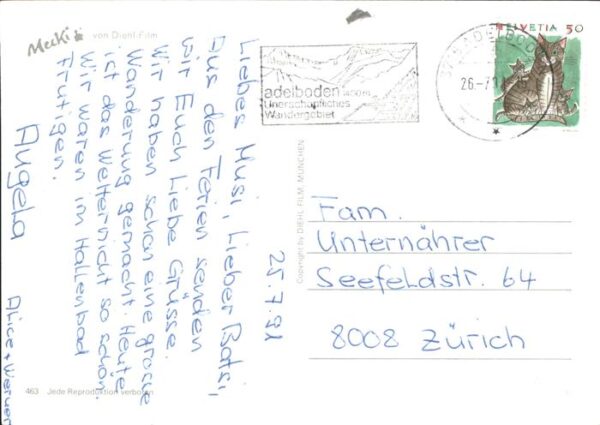 Mecki
von Diehl-Film
Liebes Musi, Lieber Batsi,
Aus den Ferien senden
wir Euch Liebe Grüsse.
Wir haben schon eine grosse
Wanderung gemacht. Heute
ist das Wetter nicht so schön.
Wir waren im Hallenbad
Frutigen.
Angela
Alice + Werner
25.7.91
463 Jede Reproduktion verboten
Copyright by DIEHL FILM, MÜNCHEN
adelboden 1400m
Unerschöpfliches
Wandergebiet
ADELBODEN
26.-7.
HELVETIA 50
Fam.
Unternährer
Seefeldstr. 64
8008 Zürich